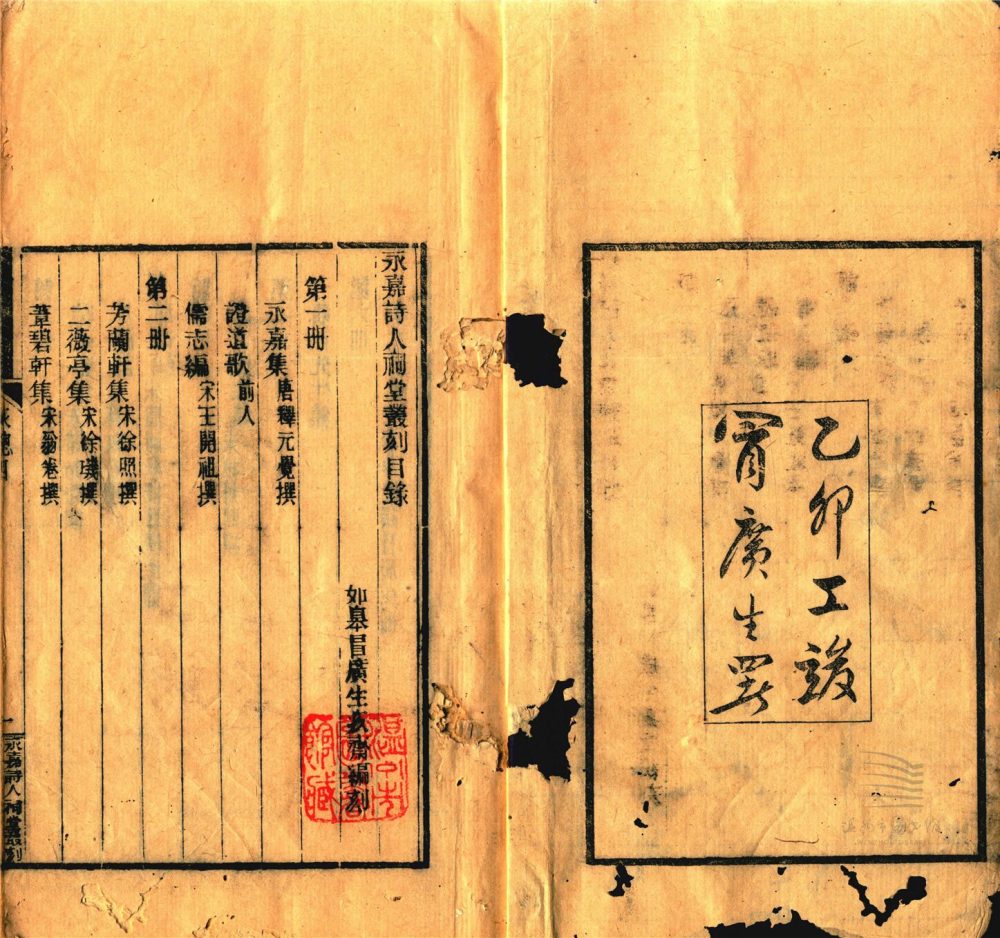 乙卯工竣
冒廣生署
永嘉詩人祠堂叢刻目錄
如皋冒廣生疚齋編刻
第一册
永嘉集唐釋元覺撰
證道歌前人
儒志編宋王開祖撰
第二册
芳蘭軒集宋徐照撰
二薇亭集宋徐璣撰
葦碧軒集宋翁卷撰
一
永嘉詩人祠堂叢刻